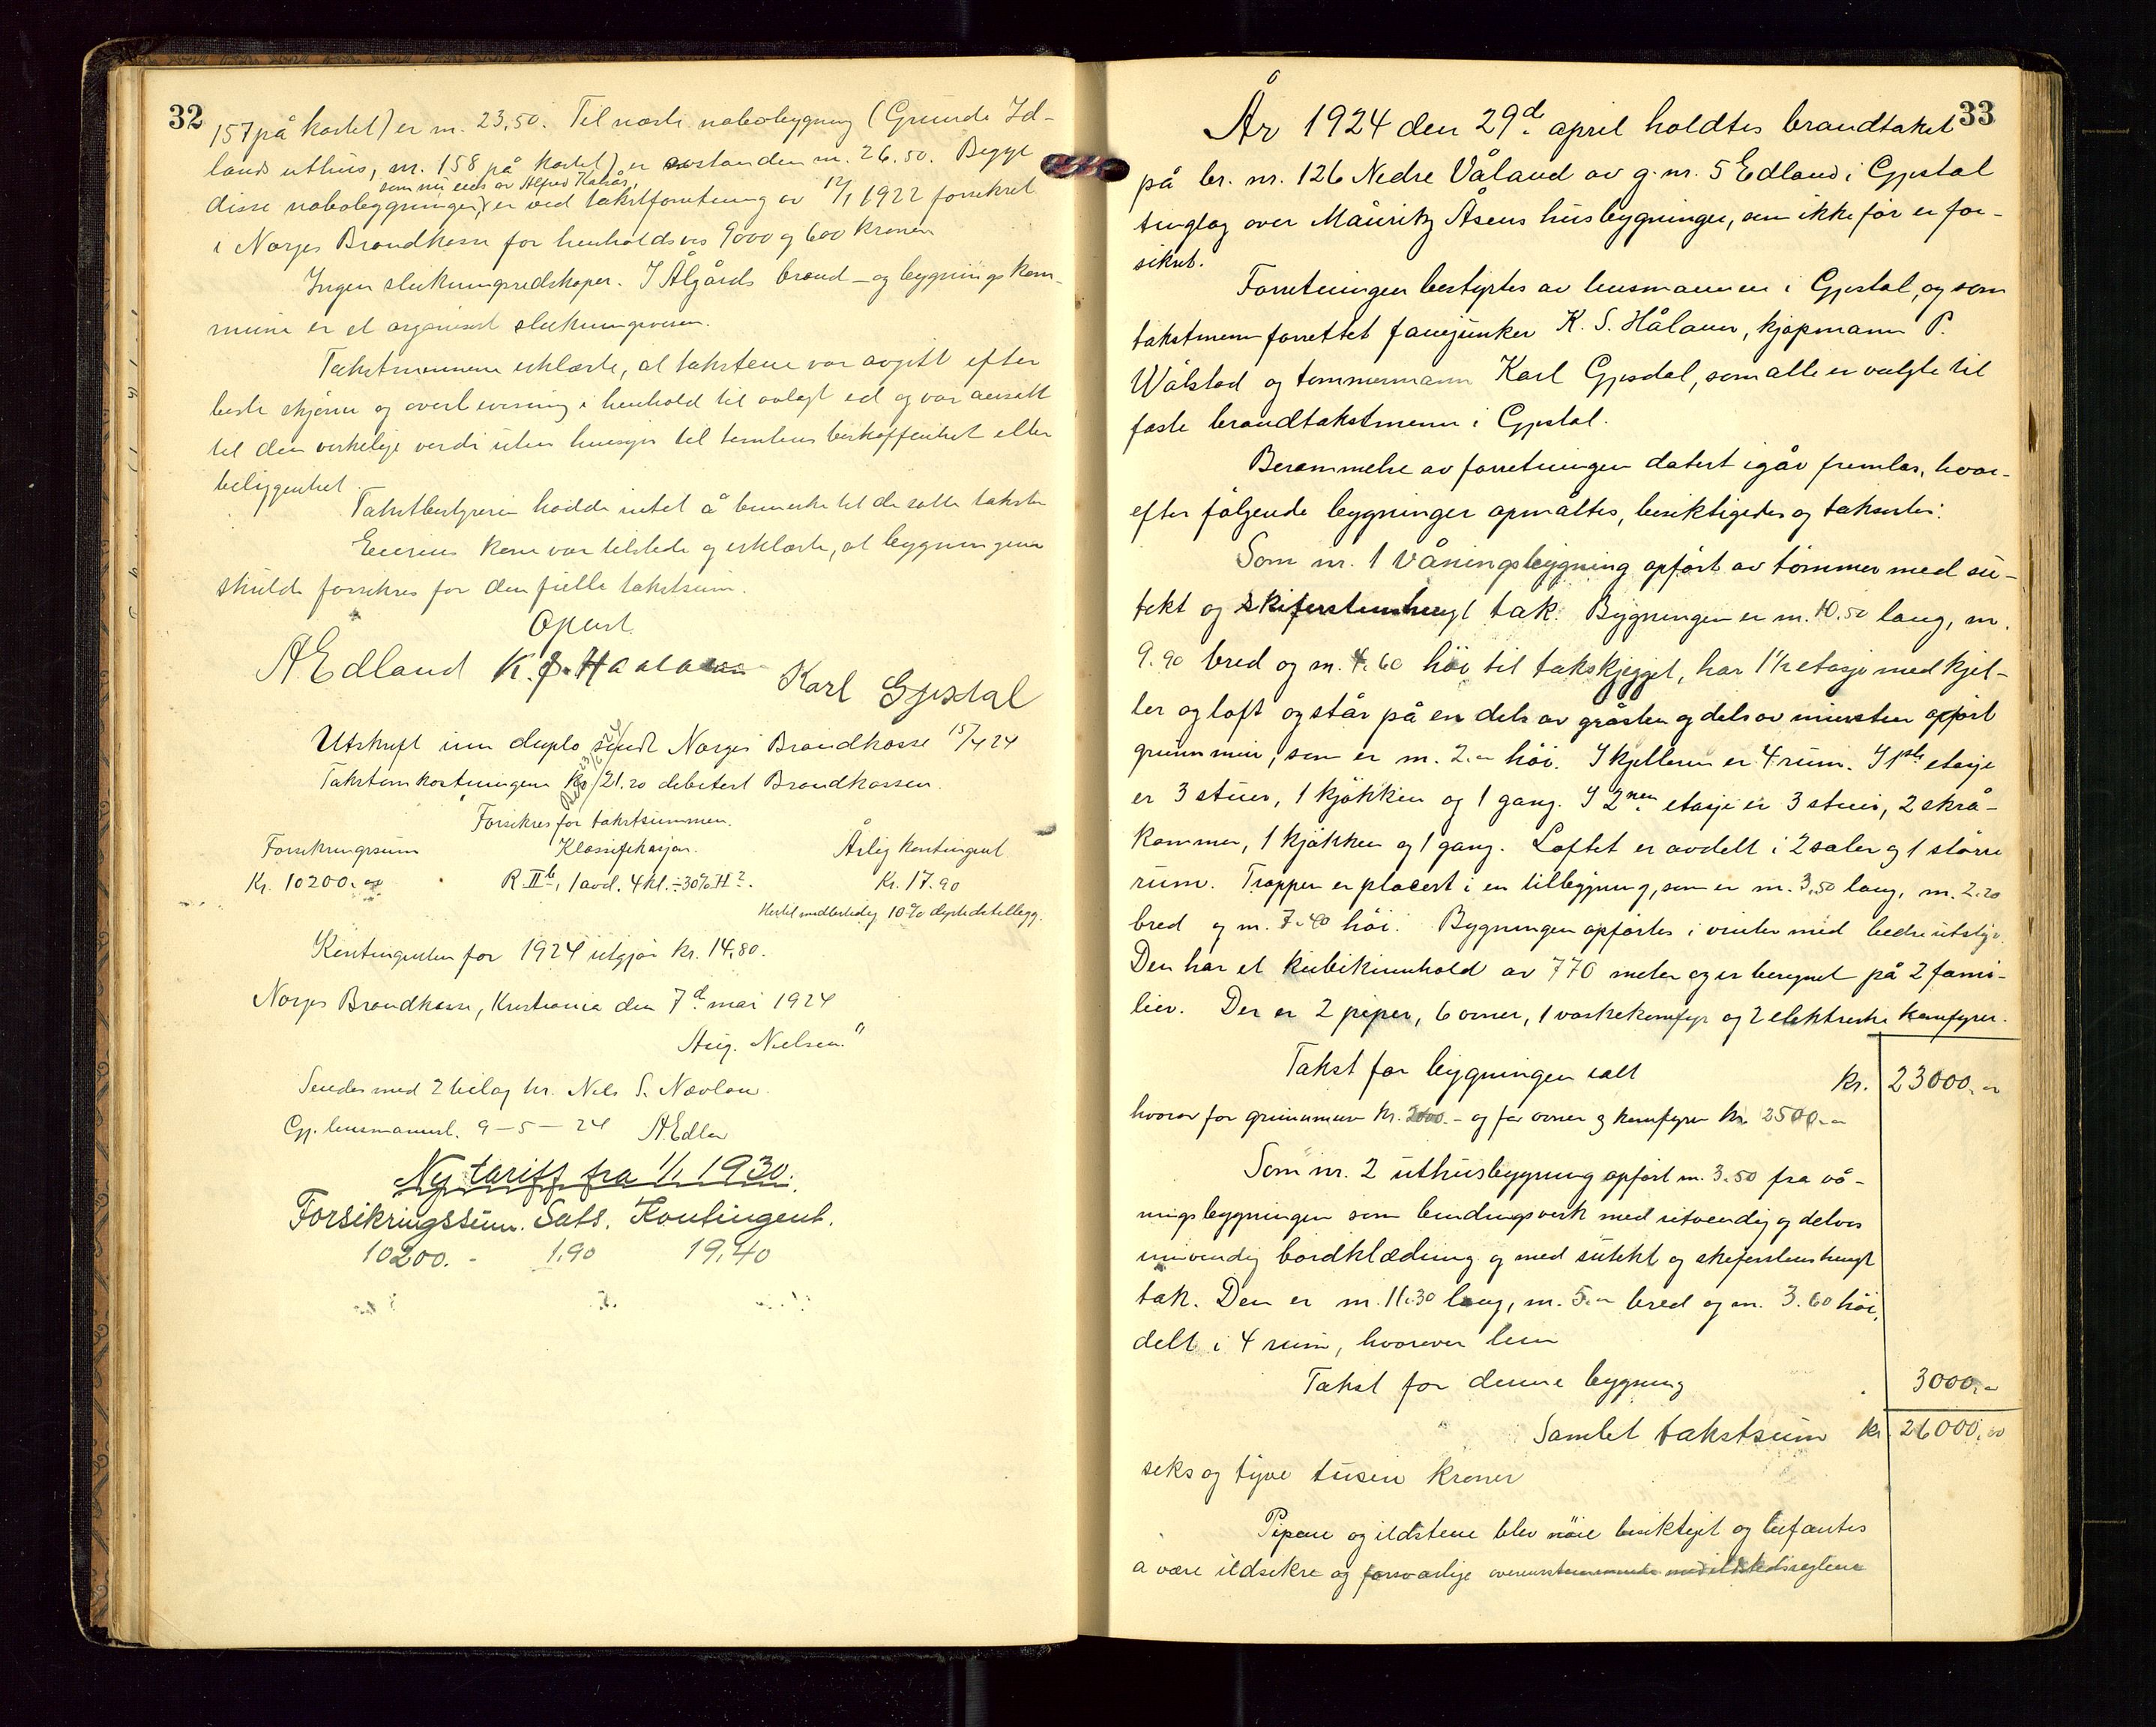 32
157 på kartet) er m. 23,50. Til næste nabobygning (Grunde Id-
lands uthus, nr. 158 på kartet) er avstanden m. 26.50. Begge
som nu eies av Alfred
disse nabobygninger, er ved takstforretning av 12/1 1922 forsikret
i Norges Brandkasse for henholdsvis 9000 og 600 kroner
Ingen slukningsredskaper. I Ålgårds brand- og bygningskom-
mune er et organisert slukningsvesen.
Takstmennene erklærte, at takstene var avgitt efter
beste skjønn og overbevisning i henhold til avlagt ed og var ansatt
til den virkelige verdi uten hensyn til tomtens beskaffenhet eller
beliggenhet.
Takstbestyreren hadde intet å bemerke til de satte takster
Eierens kone var tilstede og erklærte, at bygningene
skulde forsikres for den fulle takstsum.
Oplest
A. Edland K. S. Haaland Karl Gjesdal
Utskrift inn duplo sendt Norges Brandkasse 15/4 24
Takstomkostningene kr. 21.20 debitert Brandkassen.
Forsikres for takstsummen.
Forsikringssum Klassifikasjon. Årlig kontingent
Kr. 10200.00 R II b, 1 avd. 4 kl. ÷ 30% H 2. Kr. 17.90
Hertil midlertidig 10% dyrtidstillegg.
Kontingenten for 1924 utgjør kr. 14,80.
Norges Brandkasse, Kristiania den 7d mai 1924
Aug. Nielsen."
Sendes med 2 bilag hr. Nils S. Nævlan
Gj. lensmannsk. 9-5-24 A Edlan
Ny tariff fra 1/1 1930.
Forsikringssum. Sats. Kontingent.
10200.- 1.90 19.40
33
År 1924 den 29d april holdtes brandtakst
på br. nr. 126 Nedre Våland av g.nr. 5 Edland i Gjestal
tinglag over Mauritz Åsens husbygninger, som ikke før er for-
sikret.
Forretningen bestyrtes av lensmannen i Gjestal, og som
takstmenn forrettet fanejunker K. S. Håland, kjøpmann P.
Wålstad og tømmermann Karl Gjesdal, som alle er valgte til
faste brandtakstmenn i Gjestal.
Berammelse av forretningen datert igår fremlas, hvor-
efter følgende bygninger opmåltes, besiktigedes og taksertes:
Som nr. 1 Våningsbygning opført av tømmer med su-
tekt og skiferstenhengt tak. Bygningen er m. 10.50 lang, m.
9.90 bred og m. 4.60 høi til takskjegget, har 1½ etasje med kjel-
ler og loft og står på en dels av gråsten og dels av mursten opført
grunnmur, som er m. 2.00 høi. I kjelleren er 4 rum. I 1ste etasje
er 3 stuer, 1 kjøkken og 1 gang. I 2nen etasje er 3 stuer, 2 skrå-
kammer, 1 kjøkken og 1 gang. Loftet er avdelt i 2 saler og 1 større
rum. Trappen er placert i en tilbygning, som er m. 3,50 lang, m. 2.20
bred og m. 7.40 høi. Bygningen opførtes i vinter med bedre utstyr.
Den har et kubikinnhold av 770 meter og er beregnet på 2 fami-
lier. Der er 2 piper, 6 ovner, 1 vaskekomfyr og 2 elektriske komfyrer.
Takst for bygningen ialt kr. 23000.00
hvorav for grunnmur kr. 2000.- og for ovner og komfyrer kr. 2500.00
Som nr. 2 uthusbygning opført m. 3.50 fra vå-
ningsbygningen som bindingsverk med utvendig og delvis
innvendig bordklædning og med sutekt og skiferstenshengt
tak. Den er m. 11.30 lang, m. 5.00 bred og m. 3.60 høi,
delt i 4 rum, hvorover lem
Takst for denne bygning 3000.00
Samlet takstsum kr. 26000.00
seks og tyve tusen kroner
Pipene og ildstene blev nøie besiktiget og befantes
a være ildsikre og forsvarlige overensstemmende med ildstedsreglene